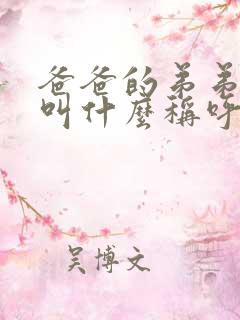 爸爸的弟弟
叫什麼稱呼
吴博文